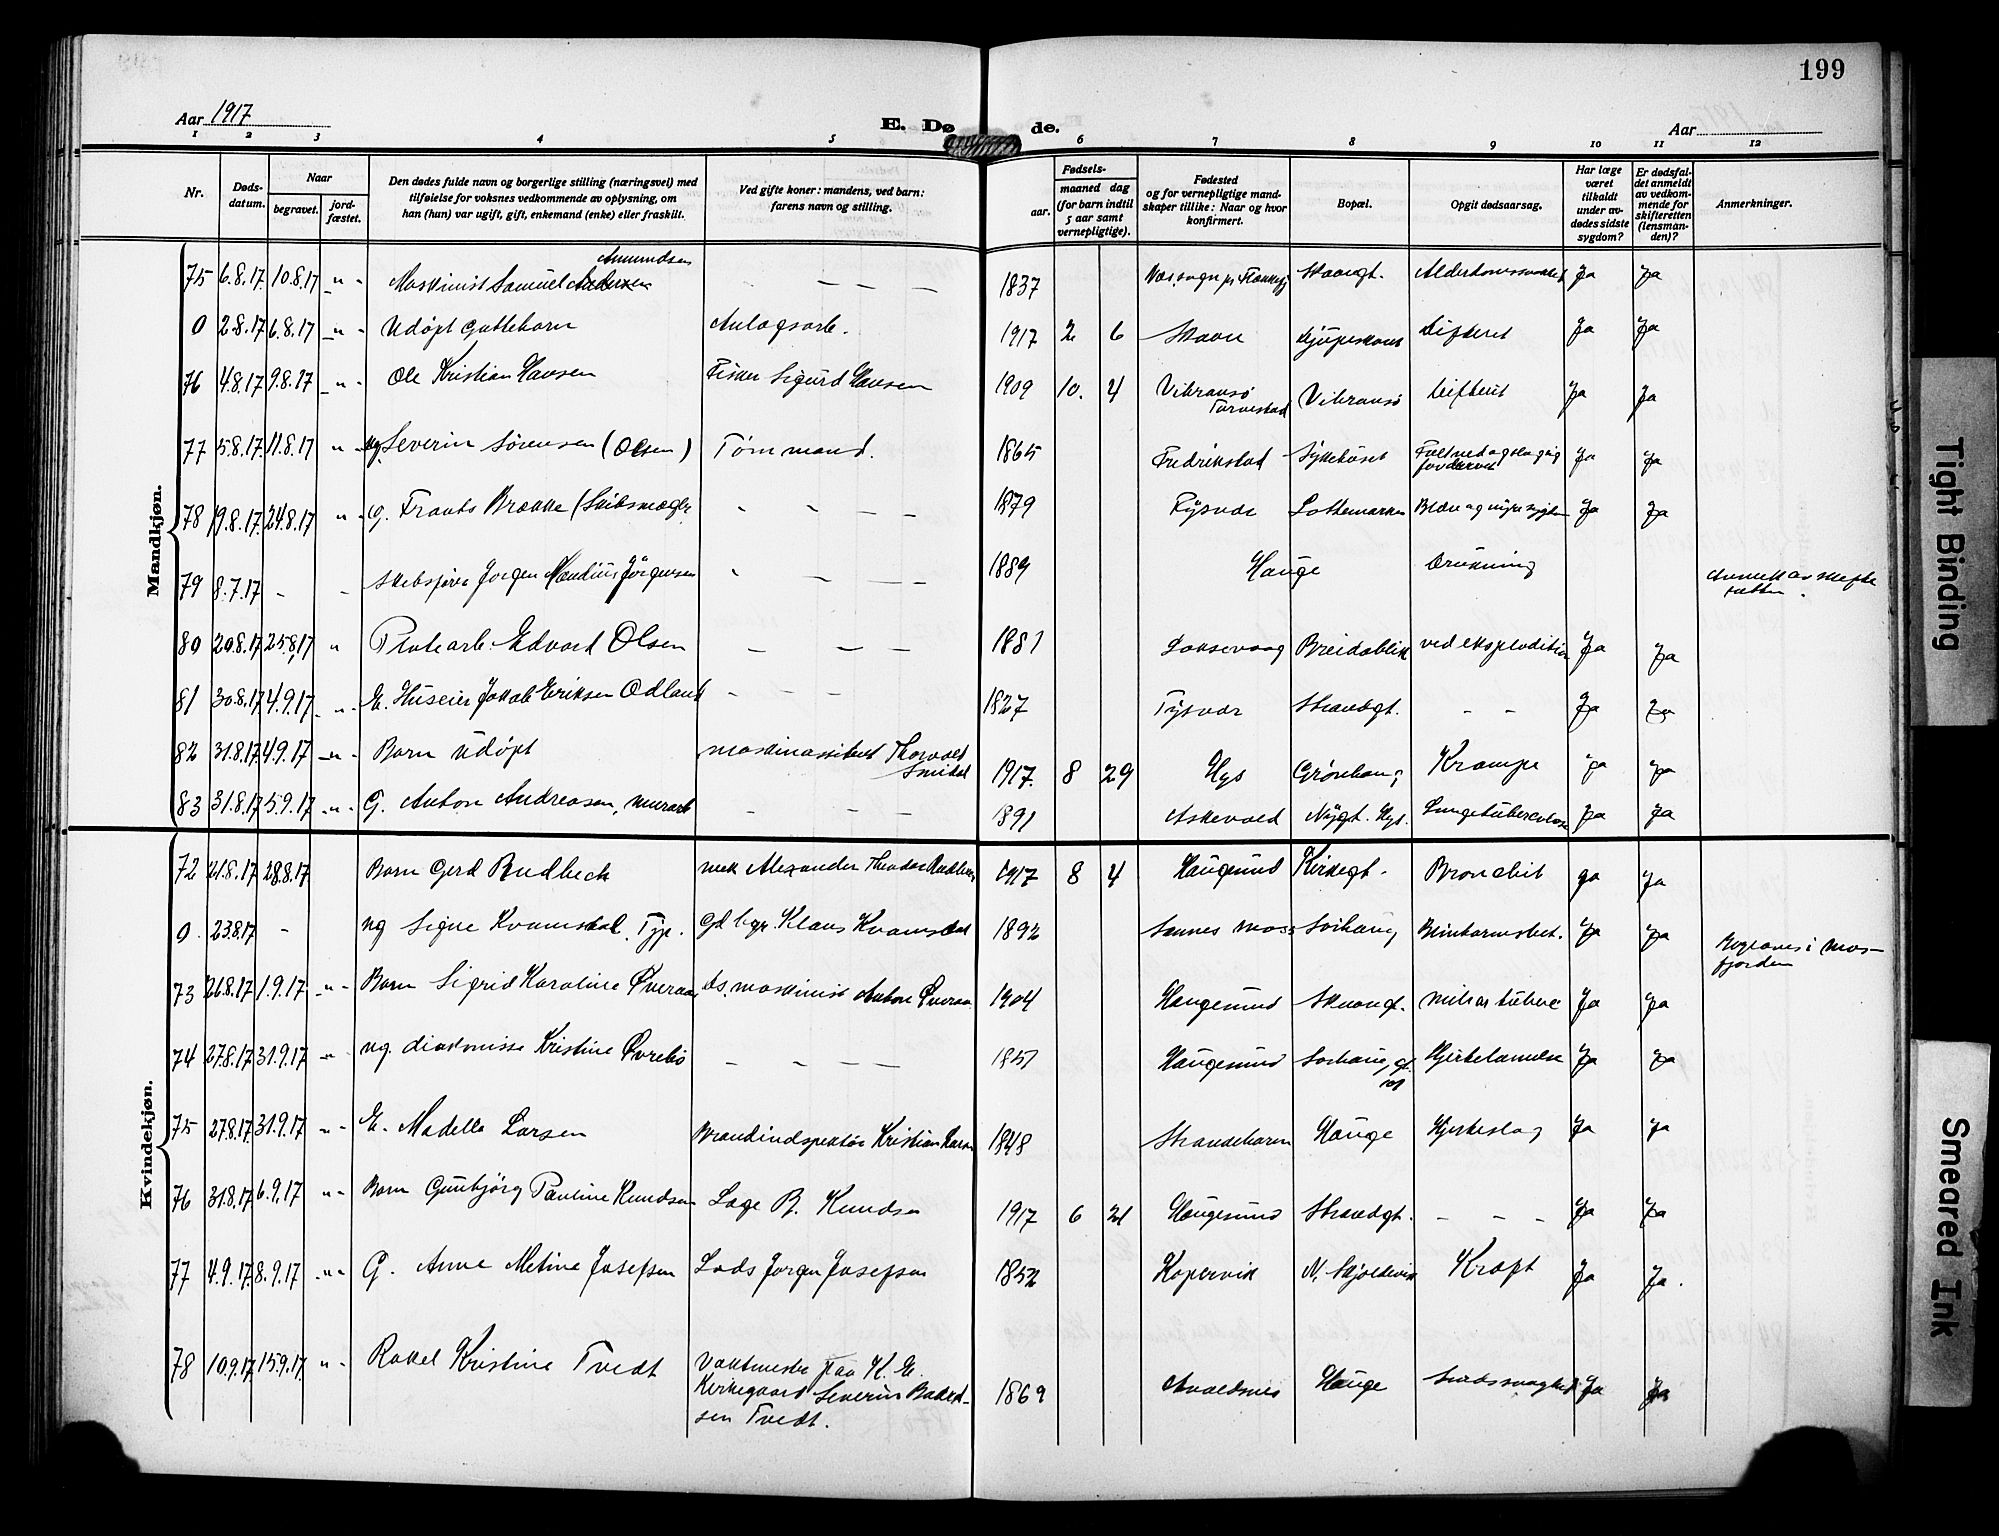 199
Aar 1917
E. Dø de.
Aar
1 2 3 4 5 6 7 8 9 10 11 12
Nr.
Døds-
datum.
Naar
begravet.
jord-
fæstet.
Den dødes fulde navn og borgerlige stilling (næringsvei) med
tilføielse for voksnes vedkommende av oplysning, om
han (hun) var ugift, gift, enkemand (enke) eller fraskilt.
Ved gifte koner: mandens, ved barn:
farens navn og stilling.
Fødsels-
aar.
maaned dag
(for barn indtil
5 aar samt
vernepligtige).
Fødested
og for vernepligtige mand-
skaper tillike: Naar og hvor
konfirmert.
Bopæl.
Opgit dødsaarsag.
Har læge
været
tilkaldt
under av-
dødes sidste
sygdom?
Er dødsfal-
det anmeldt
av vedkom-
mende for
skifteretten
(lensman-
den)?
Anmerkninger.
Mandkjøn.
Amundsen
75 6.8.17 10.8.17 -"- Maskinist Samuel — — — 1837 Ja Ja
0 2.8.17 6.8.17 -"- Udøpt guttebarn Anlagsarb. 1917 2 6 Skaare Ja Ja
76 4.8.17 9.8.17 -"- Ole Kristian Hansen Fisker Sigurd Hansen 1909 10. 4 Vibransø
Torvestad Vibransø Difterit Ja Ja
77 5.8.17 11.8.17 -"- ug Severin Sørensen (Olsen) Tømmand. 1865 Fredrikstad Sykehuset Ja Ja
78 19.8.17 24.8.17 -"- g. Frants Brække (Skibsmægler - - — — 1879 Tysvær Lottemarken Ja Ja
79 8.7.17 - - Skibsfører Jørgen Jørgensen - — — — 1889 Hauge Drukning
80 20.8.17 25.8.17 " Edvard Olsen — — — 1881 Laksevaag Breidablik ved eksplodition Ja Ja
81 30.8.17 4.9.17 -"- E. Huseier Jakob Eriksen Odland - - - — 1827 Tysvær Strandgt. - - Ja Ja
82 31.8.17 4.9.17 -"- Barn udøpt maskinassistent Thorvald
Smidal 1917. 8 29 Hgs Grønhaug Krampe ja Ja
83 31.8.17 5.9.17 -"- G. Anton Andreasen, murarb — — — 1891 Askevold Nygt. Hgs. Lungetuberculose Ja Ja
Kvindekjøn.
72 21.8.17 28.8.17 Barn Gerd Rudbeck mek Alexander Theodor Rudbeck 1917 8 4 Haugesund Kirkegt. Bronchit Ja Ja
0. 23.8.17 - ug Signe Kvamsdal. Typ. Gd br. Klaus Kvamsdal 1892 Sørhaug Blindtarmsbet. Ja Ja Begraves i Mas-
fjorden
73 26.8.17 1.9.17 -"- Barn Sigrid Karoline Øveraas ds. maskinist Anton Øveraas 1904 Haugesund Skaregt. Ja Ja
74 27.8.17 31.9.17 -"- ug. diakonisse Kristine Øvrebø — — — — 1851 Haugesund Sørhaug gt.
101 Hjertelammelse Ja Ja
75 27.8.17 31.9.17 -"- E. Madella Larsen Brandindspektør Kristian Larsen 1848 Strandebarm Hauge Hjerteslag Ja Ja
76 31.8.17 6.9.17 -"- Barn Gunbjørg Pauline Knudsen Læge B. Knudsen 1917 6 21 Haugesund Strandgt. - - - Ja Ja
77 4.9.17 8.9.17 -"- G. Anne Metine Josefsen Lods Jørgen Josefsen 1852 Kopervik N. Skjoldevik Kræft Ja Ja.
78 10.9.17 15.9.17 "- Rakel Kristine Tvedt Vaktmester paa K. E.
Kirkegaard Severin
sen Tvedt. 1869 Avaldsnes Hauge Ja Ja
Tight Binding
Smeared Ink